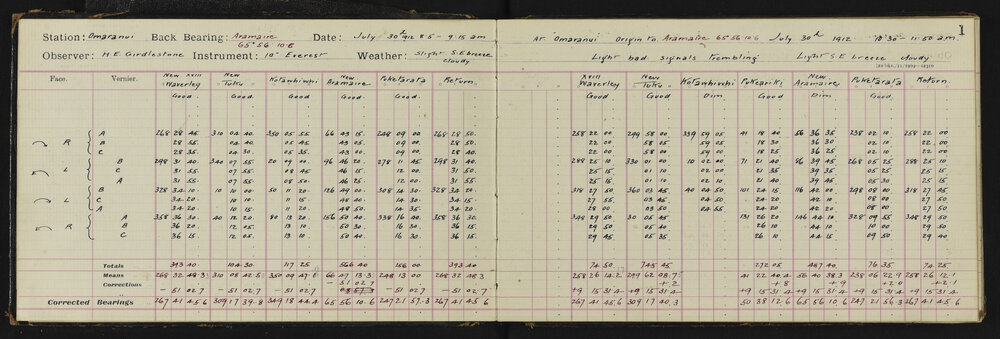 Station: Omaranui Back Bearing: Aramaire Date: July 30th 1912 8·5 - 9·15 am
65° 56 10·6
Observer: H.E. Girdlestone Instrument: 10" Everest Weather: Slight S.E breeze
cloudy
Face. Vernier. New XVIII Waverley New Tuku Kotanhiwhi New Aramaire Poketarata Return
Good Good Good Good Good Good
R A 268 28 45 310 04 40 350 05 55 66 43 15 248 09 00 268 28 50
B 28 55 04 40 05 45 43 05 09 00 28 50
C 28 35 04 30 05 35 43 00 09 00 28 40
L B 298 31 40 340 07 55 20 09 00 96 46 20 278 11 45 298 31 40
C 31 55 07 55 08 45 46 15 12 00 31 50
A 31 55 07 55 08 50 46 25 12 00 31 55
L B 328 34 10 10 10 00 50 11 20 126 49 00 308 14 30 328 34 20
C 34 20 10 10 11 15 48 40 14 30 34 15
A 34 20 10 15 11 20 48 50 14 35 34 20
R A 358 36 30 40 12 20 80 13 20 156 50 40 338 16 40 358 36 30
B 36 20 12 05 13 10 50 30 16 30 36 15
C 36 15 12 05 13 10 50 30 16 30 36 15
Totals 393 40 104 30 117 25 566 40 156 00 393 40
Means 268 32 48·3 310 08 42·5 350 09 47·1 66 47 13·3 248 13 00 268 32 48·3
Corrections - 51 02·7
- 51 02·7 - 51 02·7 - 51 02·7 - 51 02·7 - 51 02·7
Corrected Bearings 267 41 45·6 309 17 39·8 349 18 44·4 65 56 10·6 247 21 57·3 267 41 45·6
1
At Omaranui Origin to Aramaire 65 56 10·6 July 30th 1912 10·30 - 11·50 am
Light bad signals trembling Light S.E breeze cloudy
XVIII Waverley New Tuku Kotanhiwhi Pukeariki New Aramaire Poketarata Return
Good Good Dim Good Dim Good
258 22 00 299 58 00 339 59 05 41 18 40 56 36 35 238 02 10 258 22 00
22 00 58 05 59 05 18 30 36 30 02 10 22 00
22 00 58 00 59 00 18 25 36 25 02 10 22 00
288 25 10 330 01 00 10 02 00 71 21 40 86 39 45 268 05 25 288 25 10
25 15 01 10 02 00 21 35 39 35 05 25 25 15
25 15 01 10 02 10 21 40 39 45 05 30 25 15
318 27 50 360 03 45 40 04 50 101 24 15 116 42 00 298 08 00 318 27 45
27 55 03 45 04 50 24 20 42 10 08 00 27 50
28 00 03 50 04 55 24 20 42 00 08 00 27 50
348 29 50 30 05 45 131 26 20 146 44 10 328 09 55 348 29 50
29 50 05 40 26 10 44 10 10 00 29 50
29 45 05 35 26 10 44 15 09 50 29 40
74 50 745 45 272 05 487 40 76 35 74 25
258 26 14·2 299 62 08·7 41 22 40·4 56 40 38·3 238 06 22·9 258 26 12·1
+2 +8 +9 +2·0 +2·1
+9 15 31·4 +9 15 31·4 +9 15 31·4 +9 15 31·4 +9 15 31·4 +9 15 31·4
267 41 45·6 309 17 40·3 50 38 12·6 65 56 10·6 247 21 56·3 267 41 45·6